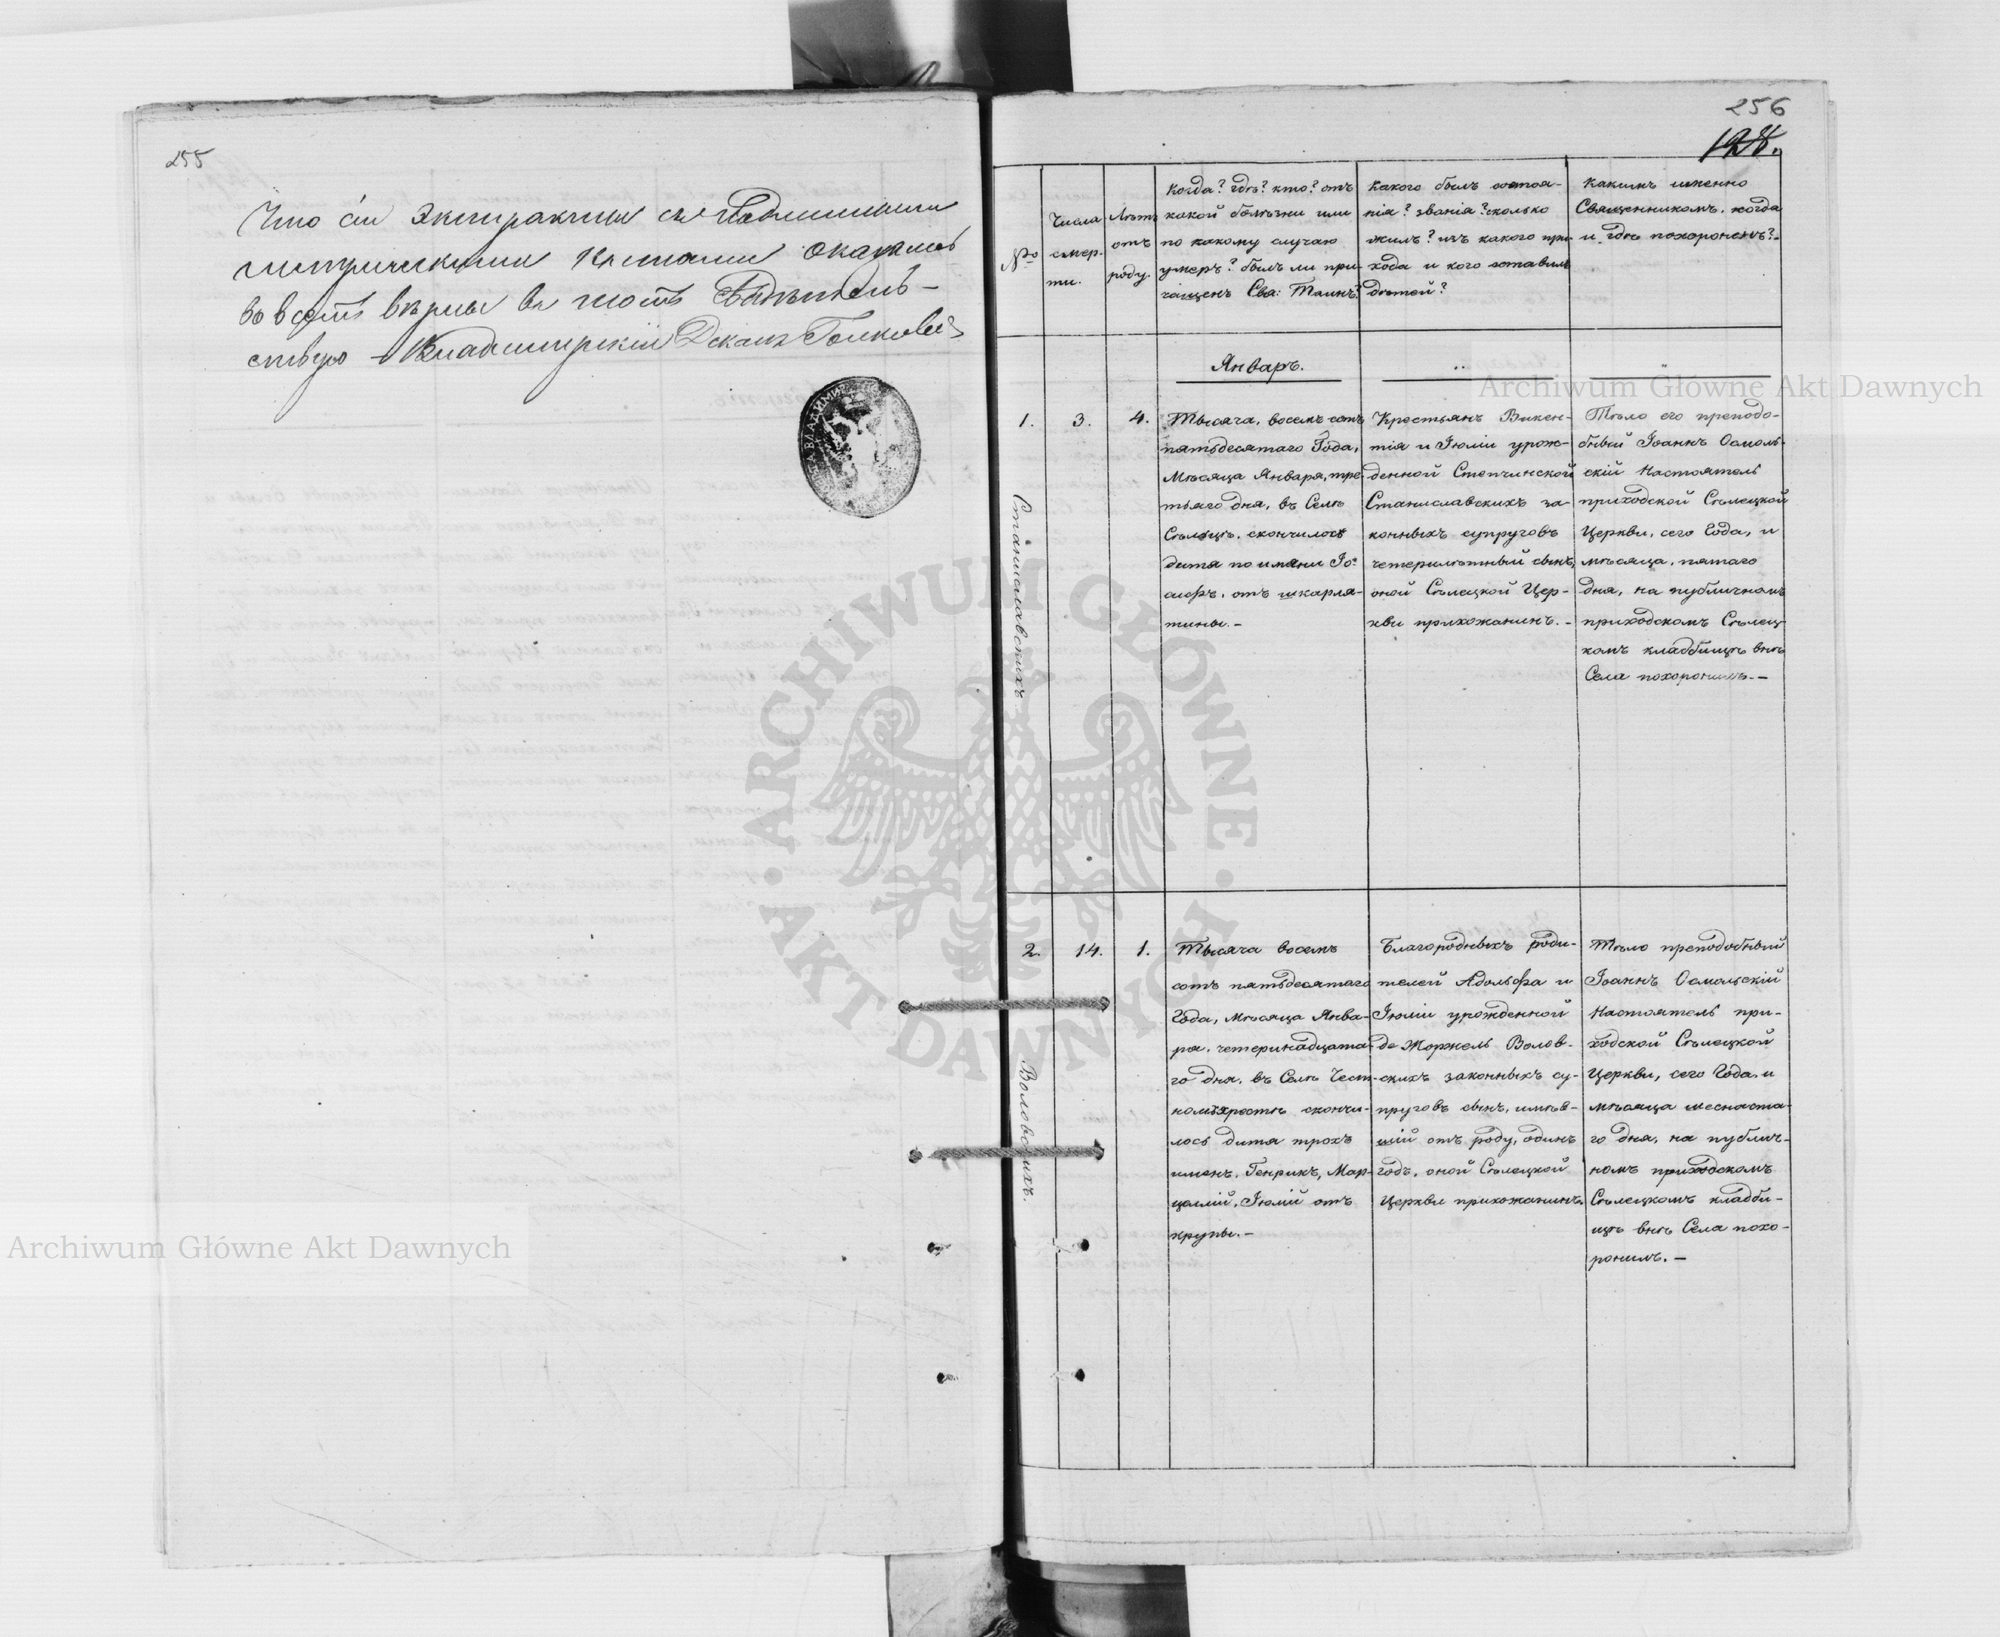 255
Что сіи Экстракты съ подлинными
метрическими Книгами оказались
во всемъ вѣрны въ томъ Свидѣтель-
ствую Владимирскій Деканъ
256
128.
№
Числа смер-
ти.
Лѣтъ
отъ
роду.
Когда? гдѣ? кто? отъ
какой болѣзни или
по какому случаю
умеръ? былъ ли при-
чащенъ Свя: Таинъ?
Какого былъ состоя-
нія? званія? сколько
жилъ? изъ какого при-
хода и кого оставилъ
дѣтей?
Какимъ именно
Священникомъ, когда
и гдѣ похороненъ?-
Январь.
1.
Станиславскихъ.
3.
4.
Тысяча, восемь сотъ
пятьдесятаго Года,
Мѣсяца Января, тре-
тьяго дня, въ Селѣ
Сѣльцѣ, скончилось
дитя по имени Іо-
сифъ, отъ шкарля-
тины.-
Крестьянъ Викен-
тія и Іюліи урож-
денной Степчинской
Станиславскихъ за-
конныхъ супруговъ
четерилѣтный сынъ,
оной Сѣлецкой Цер-
кви прихожанинъ.-
Тѣло его преподо-
бный Іоаннъ Осмоль-
скій Настоятель
приходской Сѣлецкой
Церкви, сего Года, и
мѣсяца, пятаго
дня, на публичномъ
приходскомъ Сѣлец-
комъ кладбищѣ внѣ
Села похоронилъ.-
2.
Воловскихъ.
14.
1.
Тысяча восемь
сотъ пятьдесятаго
Года, мѣсяца Янва-
ря, четеринадцата-
го дня, въ Селѣ Чест-
номъхрестѣ скончи-
лось дитя трохъ
именъ, Генрикъ, Мар-
целлій, Іюлій отъ
крупы.-
Благородныхъ роди-
телей Адольфа и
Іюліи урожденной
де Жоржель Волов-
скихъ законныхъ су-
пруговъ сынъ, имѣв-
шій отъ роду, одинъ
годъ, оной Сѣлецкой
Церкви прихожанинъ.
Тѣло преподобный
Іоаннъ Осмольскій
Настоятель при-
ходской Сѣлецкой
Церкви, сего Года, и
мѣсяца шеснаста-
го дня, на публич-
номъ приходскомъ
Сѣлецкомъ кладби-
щѣ внѣ Села похо-
ронилъ.-
Archiwum Główne Akt Dawnych
ARCHIWUM GŁÓWNE AKT DAWNYCH
Archiwum Główne Akt Dawnych